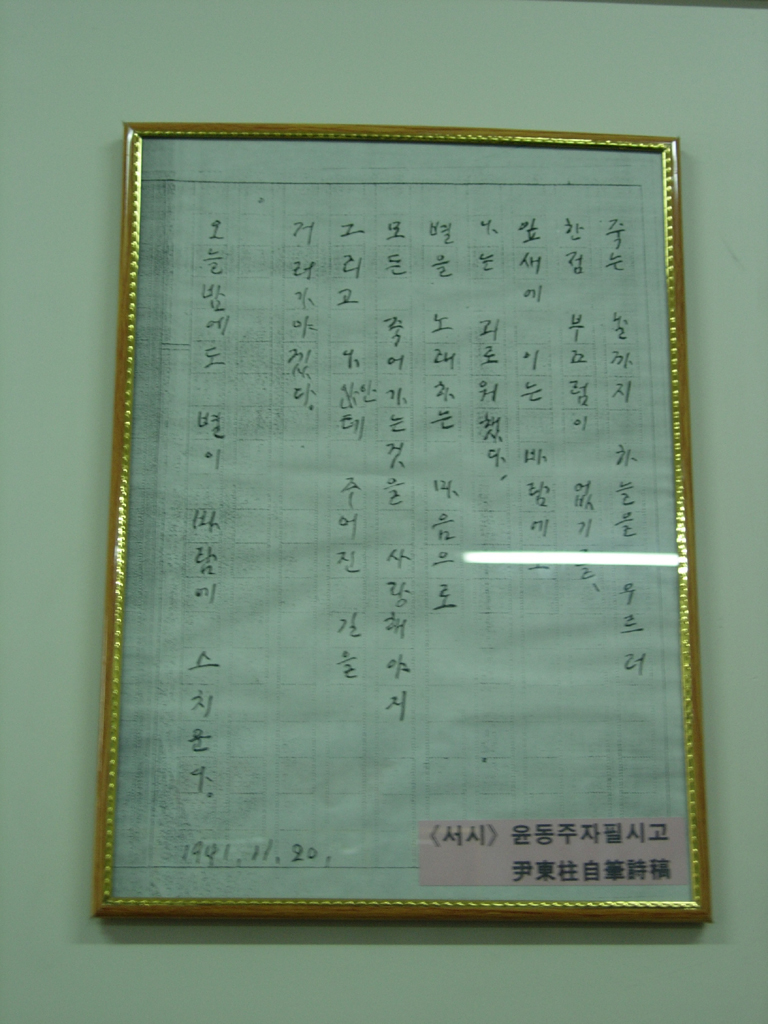 죽는 날까지 하늘을 우르러
한점 부끄럼이 없기를、
잎새에 이는 바람에도
나는 괴로워했다.
별을 노래하는 마음으로
모든 죽어가는것을 사랑해야지
그리고 나안테 주어진 길을
거러가야겠다.
오늘밤에도 별이 바람에 스치운다.
1941. 11. 20.
《서시》 윤동주자필시고
尹東柱自筆詩稿